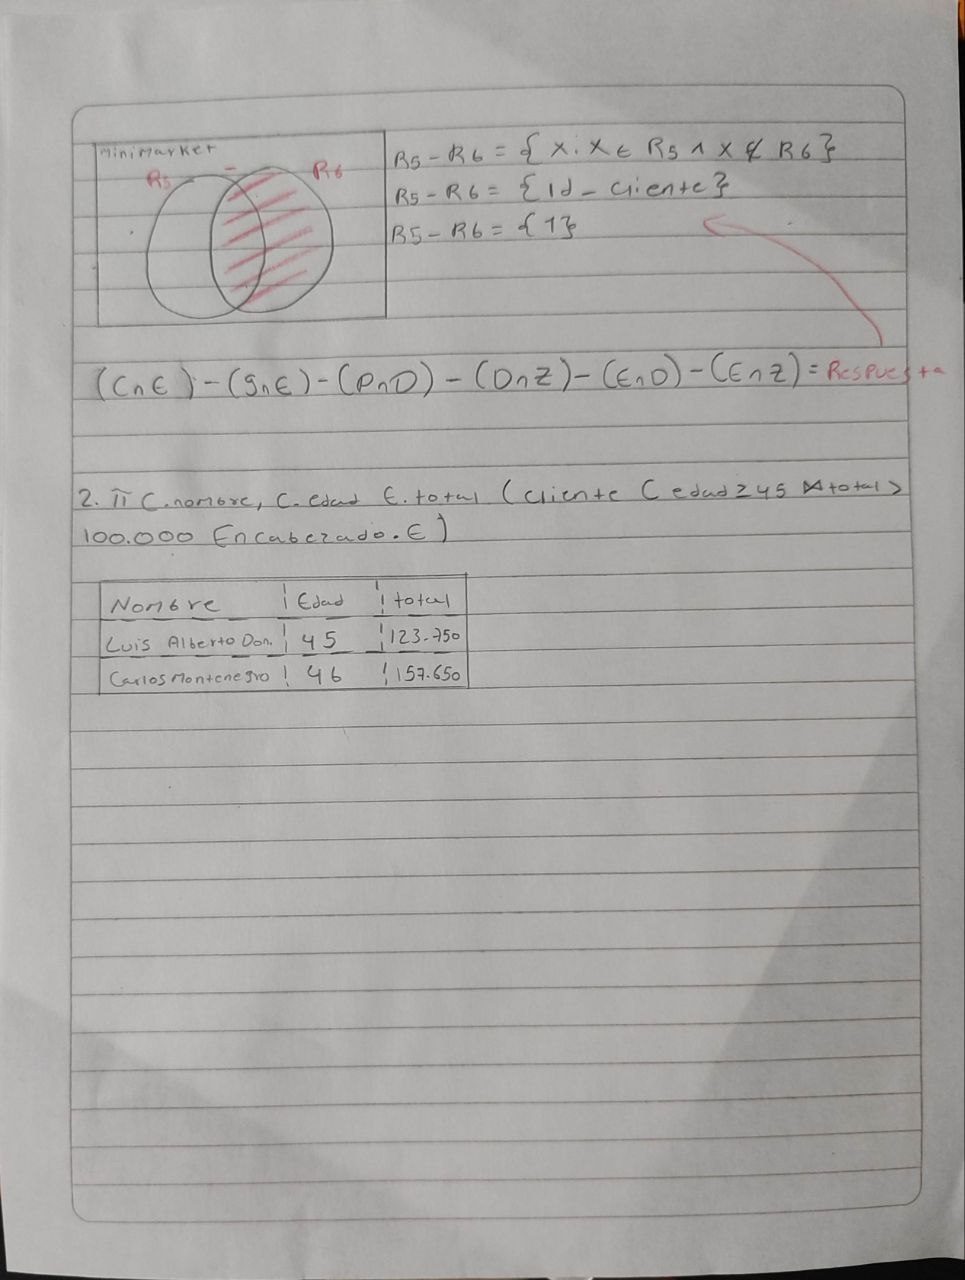 Minimarket
R5 - R6
R5 - R6 = { x: x ∈ R5 ∧ x ∉ R6}
R5 - R6 = {Id - cliente}
R5 - R6 = {1}
(C∩E) - (S∩E) - (P∩D) - (D∩Z) - (E∩D) - (E∩Z) = Respuesta
2. π C.nombre, C. edad E. total (cliente C edad ≥ 45 ⋈ total >
100.000 Encabezado. E)
Nombre Edad total
Luis Alberto Don. 45 123.750
Carlos Montenegro 46 157.650